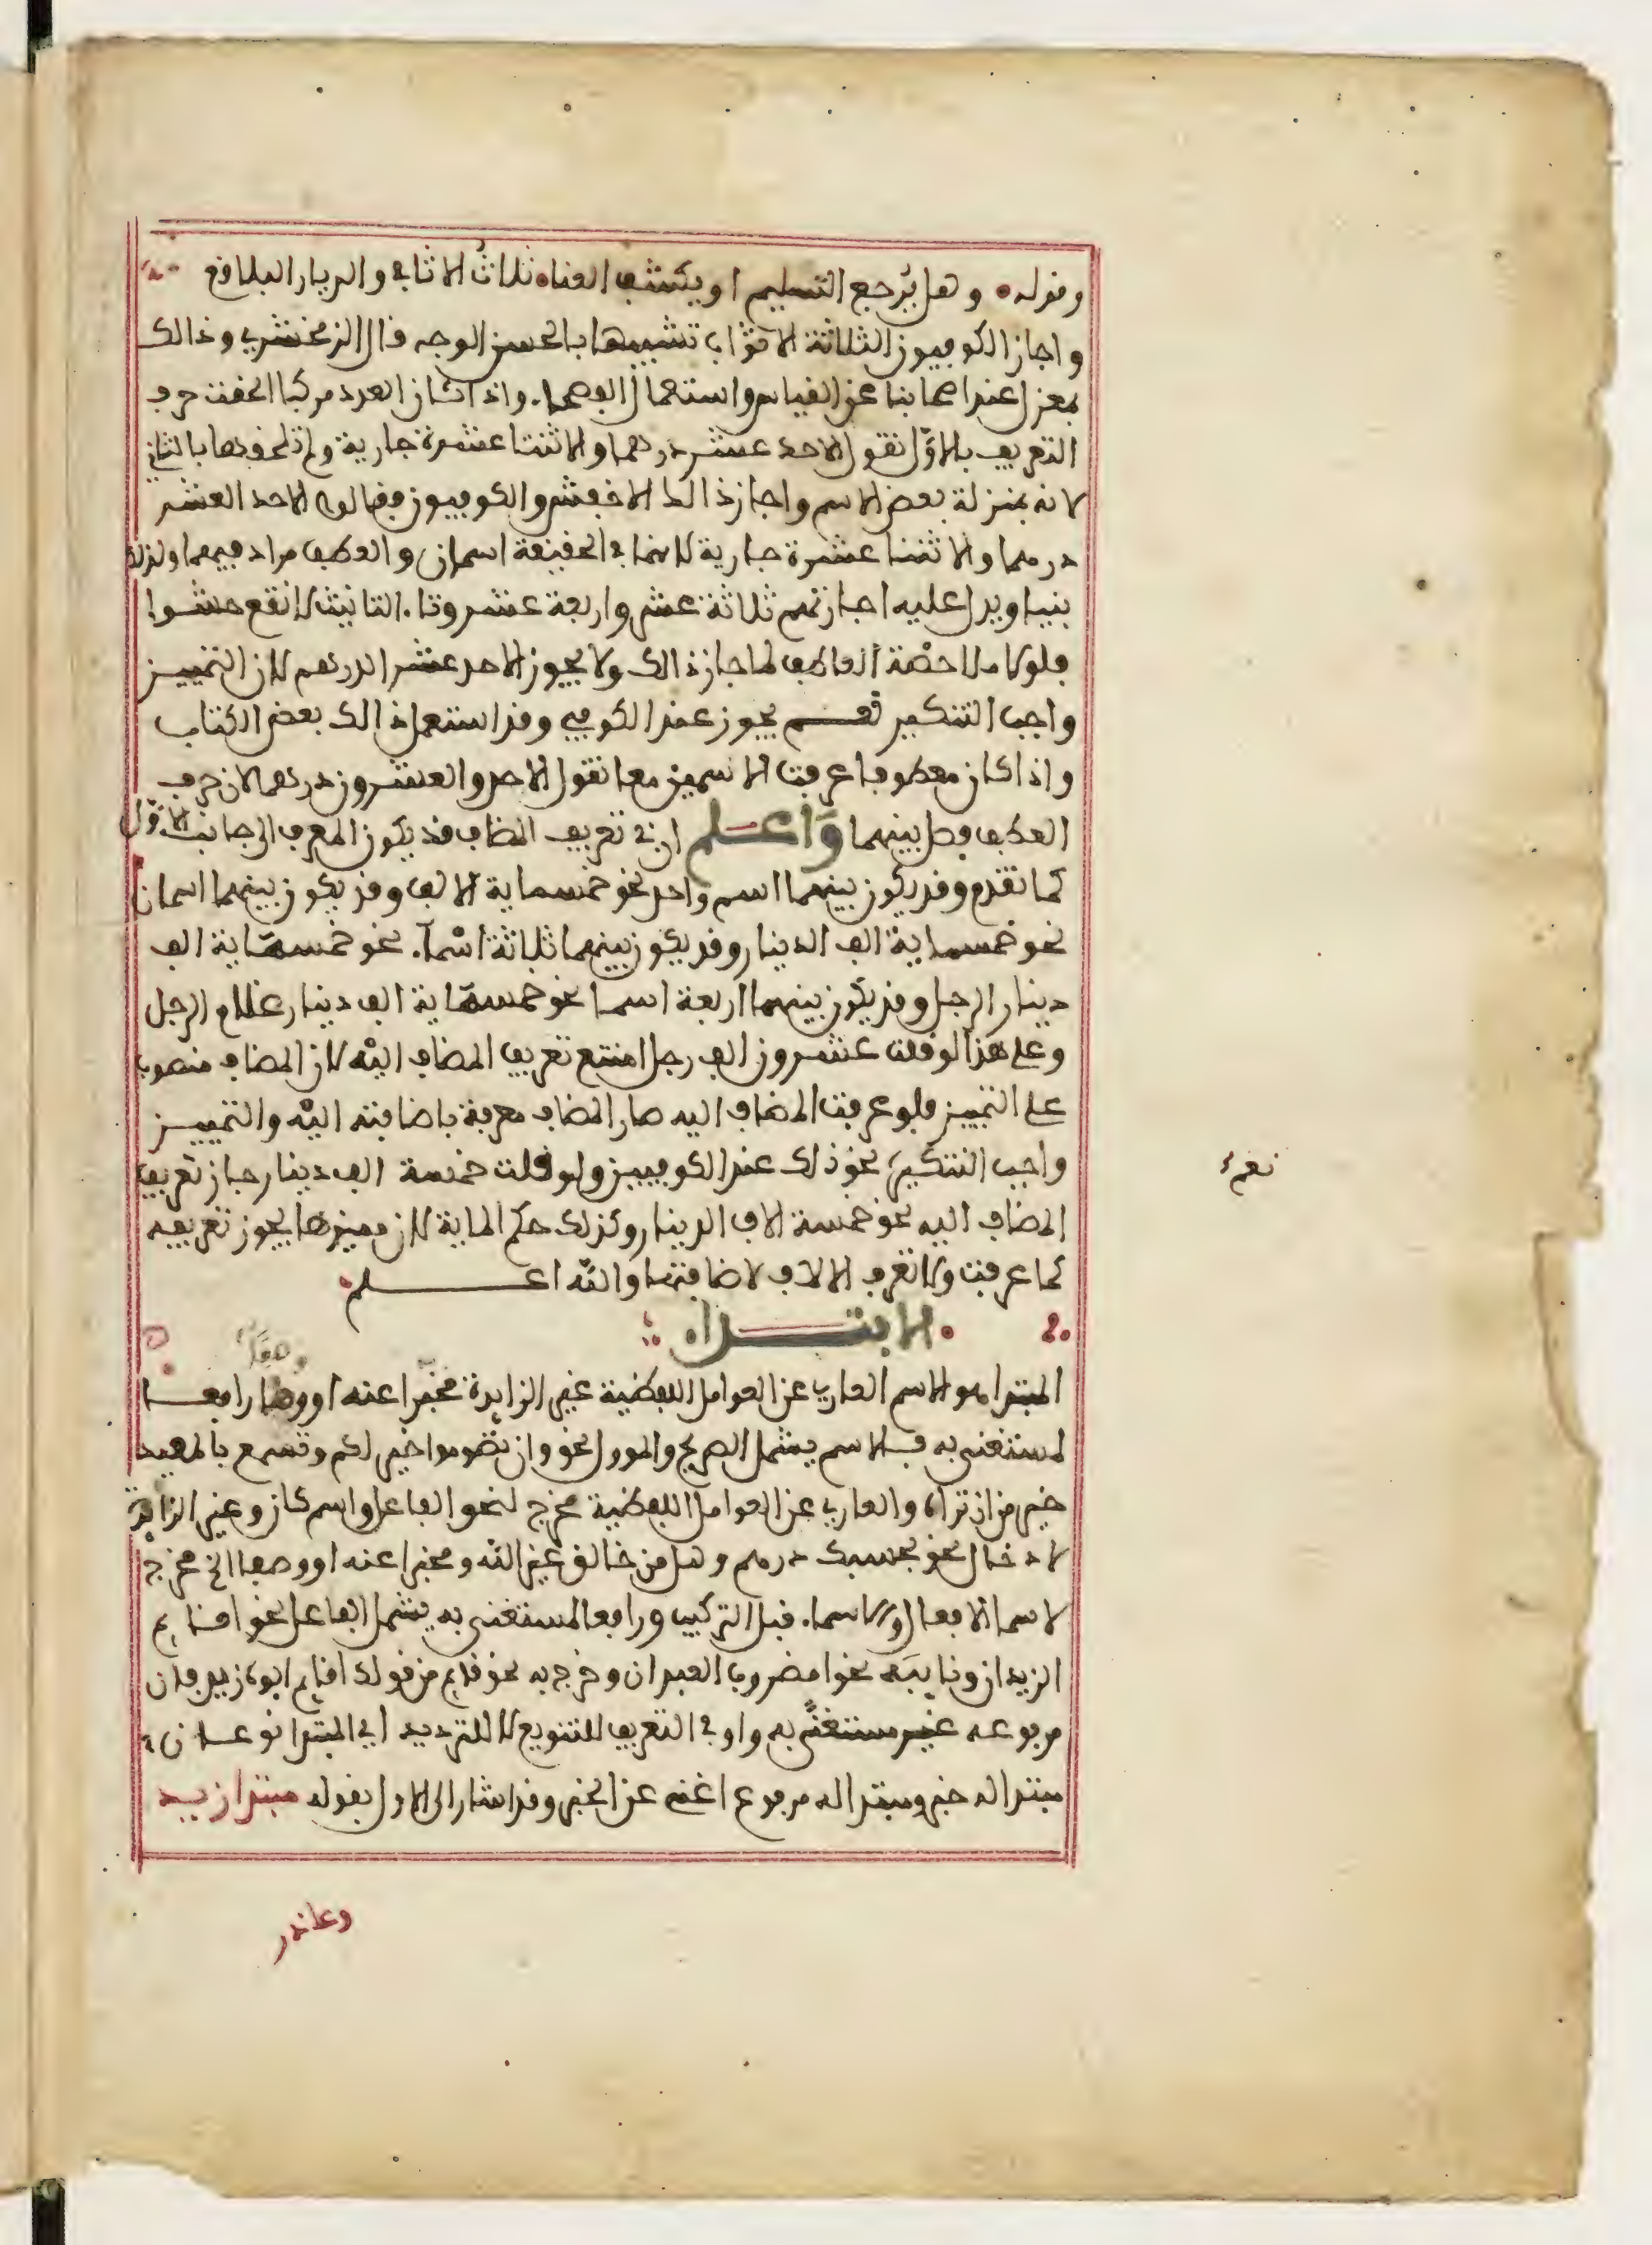 وقوله وهل يُرجع التسليم او يكشف العناه ثلاث الاثافي والديار البلاقع
واجاز الكوفيون الثلاثة الاثواب تشبيها بالحسن الوجه قال الزمخشري وذالك
بمعزل عند اصحابنا عن القياس واستعمال الفصحا. واذا كان العدد مركبا الحقت حرف
التعريف بالاوّل تقول الاحد عشر درهما والاثنتا عشرة جارية ولم تلحقها بالثاني
لانه بمنزلة بعض الاسم واجاز ذالك الاخفش والكوفيون فقالوا الاحد العشر
درهما والاثنتا عشرة جارية لانهما في الحقيقة اسمان والعطف مراد فيهما ولذلك
بنيا ويدل عليه اجازتهم ثلاثة عشر واربعة عشر وتا. التانيث لا تقع حشوا
فلولا ملاحظة العاطف لما جاز ذالك ولا يجوز الاحد عشر الدرهم لان التمييز
واجب التنكير نعم يجوز عند الكوفي وقد استعمل ذالك بعض الكتاب
واذا كان معطوفا عرفت الاسمين معا تقول الاحد والعشرون درهما لان حرف
العطف فصل بينهما وَاعلم ان في تعريف المضاف قد يكون المعرف الى جانب الاوّل
كما تقدم وقد يكون بينهما اسم واحد نحو خمسماية الالف وقد يكون بينهما اسمان
نحو خمسماية الف الدينار وقد يكون بينهما ثلاثة اسمآ. نحو خمسماية الف
دينار الرجل وقد يكون بينهما اربعة اسما نحو خمسماية الف دينار غلام الرجل
وعلى هذا لو قلت عشرون الف رجل امتنع تعريف المضاف اليه لان المضاف منصوب
على التمييز فلو عرفت المضاف اليه صار المضاف معرفة باضافته اليه والتمييز
واجب التنكير، نحو ذلك عند الكوفيين ولو قلت خمسة الف دينار جاز تعريف
المضاف اليه نحو خمسة الاف الدينار وكذلك حكم الماية لان مميزها يجوز تعريفه
كما عرفت ولا تعرف الالاف لاضافتها والله اعلم
الابتداء
المبتدا هو الاسم العاري عن العوامل اللفظية غير الزايدة مخبرا عنه او وصفا رافعا
لمستغنى به فالاسم يشمل الصريح والموول نحو وان تصوموا خير لكم وتسمع بالمعيد
خير من ان تراه والعاري عن العوامل اللفظية مخرج لنحو الفاعل واسم كان وغير الزايدة
لادخال نحو بحسبك درهم وهل من خالق غير الله ومخبرا عنه او وصفا الخ مخرج
لاسما الافعال والاسما. قبل التركيب ورافعا لمستغنى به يشمل الفاعل نحو اقايم
الزيدان ونايبه نحو امضروب العبدان وخرج به نحو قايم من قولك اقايم ابوه زيد فان
مرفوعه غير مستغنًى به واو في التعريف للتنويع لا للترديد اي المبتدا نوعان
مبتدا له خبر ومبتدا له مرفوع اغنى عن الخبر وقد اشار الى الاول بقوله مبتدا زيد
وعاذر